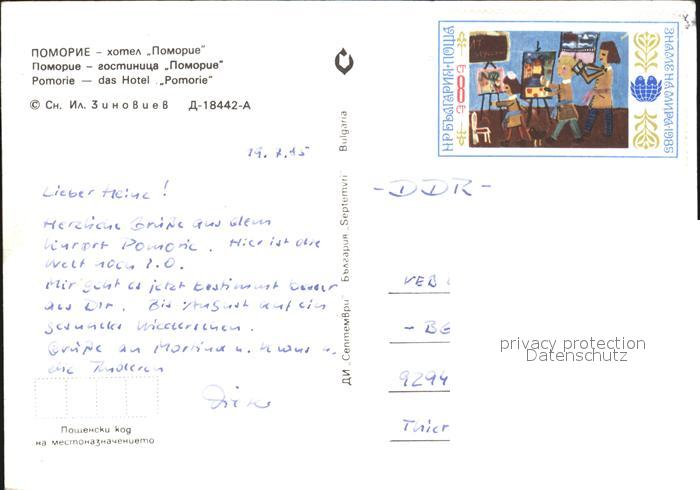 ПОМОРИЕ – хотел „Поморие"
Поморие – гостиница „Поморие"
Pomorie — das Hotel „Pomorie"
© Сн. Ил. Зиновиев Д-18442-А
НР БЪЛГАРИЯ·ПОЩА
8
ЗНАМЕ НА МИРА·1985
ДИ „Септември" България „Septemvri" Bulgaria
19.7.85
Lieber Heinz!
Herzliche Grüße aus dem
Kurort Pomorie. Hier ist die
Welt noch i.O.
Mir geht es jetzt bestimmt besser
als Dir. Bis August auf ein
gesundes Wiedersehen.
Grüße an Martina u. Klaus u.
die Anderen
- DDR -
VEB
- BG
9294
Thier
privacy protection
Datenschutz
Пощенски код
на местоназначението